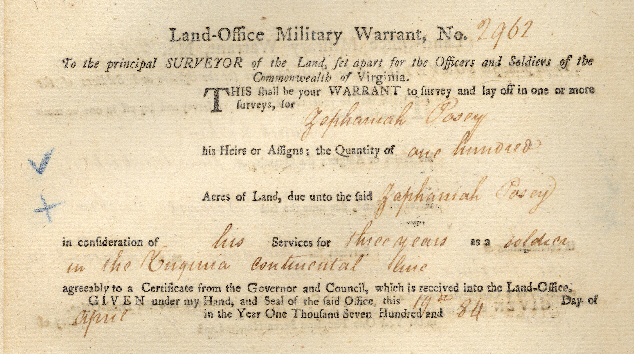 Land-Office Military Warrant, No. 2962
To the principal SURVEYOR of the Land, set apart for the Officers and Soldiers of the
Commonwealth of Virginia.
THIS shall be your WARRANT to survey and lay off in one or more
surveys, for
Zephaniah Posey
his Heirs or Assigns; the Quantity of one hundred
Acres of Land, due unto the said Zephaniah Posey
in consideration of his Services for three years as a soldier
in the Virginia continental line
agreeably to a Certificate from the Governor and Council, which is received into the Land-Office.
GIVEN under my Hand, and Seal of the said Office, this 19th Day of
April in the Year One Thousand Seven Hundred and 84